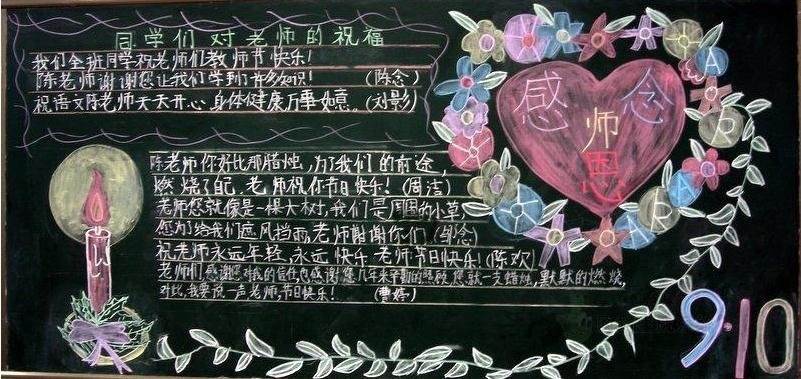 同学们对老师的祝福
我们全班同学祝老师们教师节快乐!
陈老师谢谢您让我们学到了许多知识! (陈念)
祝语文陈老师天天开心身体健康万事如意。(刘影)
感念
师
恩
陈老师你好比那腊烛,为了我们的前途,
燃烧了自己,老师祝你节日快乐!(周洁)
老师您就像是一棵大树,我们是周围的小草,
您为给我们遮风挡雨,老师谢谢你们(邹念)
祝老师永远年轻,永远快乐老师节日快乐!(陈欢)
老师们感谢您对我的信任也感谢您几年来辛勤的照顾您就一支蜡烛,默默的燃烧,
对比,我要说一声老师,节日快乐! (曹婷)
9.10